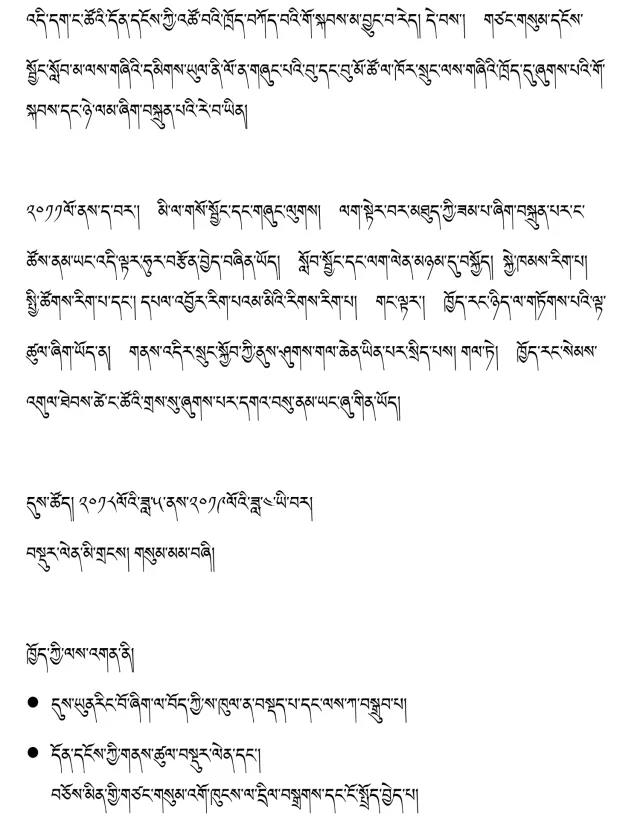 འདི་དག་ང་ཚོའི་དོན་དངོས་ཀྱི་འཚོ་བའི་ཁྲོད་བཀོད་བའི་གོ་སྐབས་མ་བྱུང་བ་རེད། དེ་བས་། གཙང་གསུམ་དངོས་
སྦྱོང་སློབ་མ་ལས་གཞིའི་དམིགས་ཡུལ་ནི་ལོ་ན་གཞུང་པའི་བུ་དང་བུ་མོ་ཚོ་ལ་ཁོར་སྲུང་ལས་གཞིའི་ཁྲོད་དུ་ཞུགས་པའི་གོ་
སྐབས་དང་ཉེ་ལམ་ཞིག་བསྐྲུན་པའི་རེ་བ་ཡིན།
༢༠༡༡ལོ་ནས་ད་བར་། མི་ལ་གསོ་སྦྱོང་དང་གཞུང་ལུགས། ལག་སྟེར་བར་མཐུད་ཀྱི་ཟམ་པ་ཞིག་བསྐྲུན་པར་ང་
ཚོས་ནམ་ཡང་འདི་ལྟར་ཧུར་བརྩོན་བྱེད་བཞིན་ཡོད། སློབ་སྦྱོང་དང་ལག་ལེན་མཉམ་དུ་བསྐྱོད། སྐྱེ་ཁམས་རིག་པ།
སྤྱི་ཚོགས་རིག་པ་དང་། དཔལ་འབྱོར་རིག་པའམ་མིའི་རིགས་རིག་པ། གང་ལྟར་། ཁྱོད་རང་ཉིད་ལ་གཏོགས་པའི་ལྟ་
ཚུལ་ཞིག་ཡོད་ན། གནས་འདིར་སྲུང་སྐྱོབ་ཀྱི་ནུས་ཤུགས་གལ་ཆེན་ཡིན་པར་སྲིད་པས། གལ་ཏེ། ཁྱོད་རང་སེམས་
འགུལ་ཐེབས་ཚེ་ང་ཚོའི་གྲས་སུ་ཞུགས་པར་དགའ་བསུ་ནམ་ཡང་ཞུ་གིན་ཡོད།
དུས་ཚོད། ༢༠༡༨ལོའི་ཟླ་༥་ནས་༢༠༡༩ལོའི་ཟླ་༤་ཡི་བར།
བསྡུར་ལེན་མི་གྲངས། གསུམ་མམ་བཞི།
ཁྱོད་ཀྱི་ལས་འགན་ནི།
● དུས་ཡུན་རིང་པོ་ཞིག་ལ་བོད་ཀྱི་ས་ཁུལ་ན་བསྡད་པ་དང་ལས་ཀ་བསྒྲུབ་པ།
● དོན་དངོས་ཀྱི་གནས་ཚུལ་བསྡུར་ལེན་དང་།
བཅོས་མིན་གྱི་གཙང་གསུམ་འགོ་ཁུངས་ལ་དྲིལ་བསྒྲགས་དང་ངོ་སྤྲོད་བྱེད་པ།